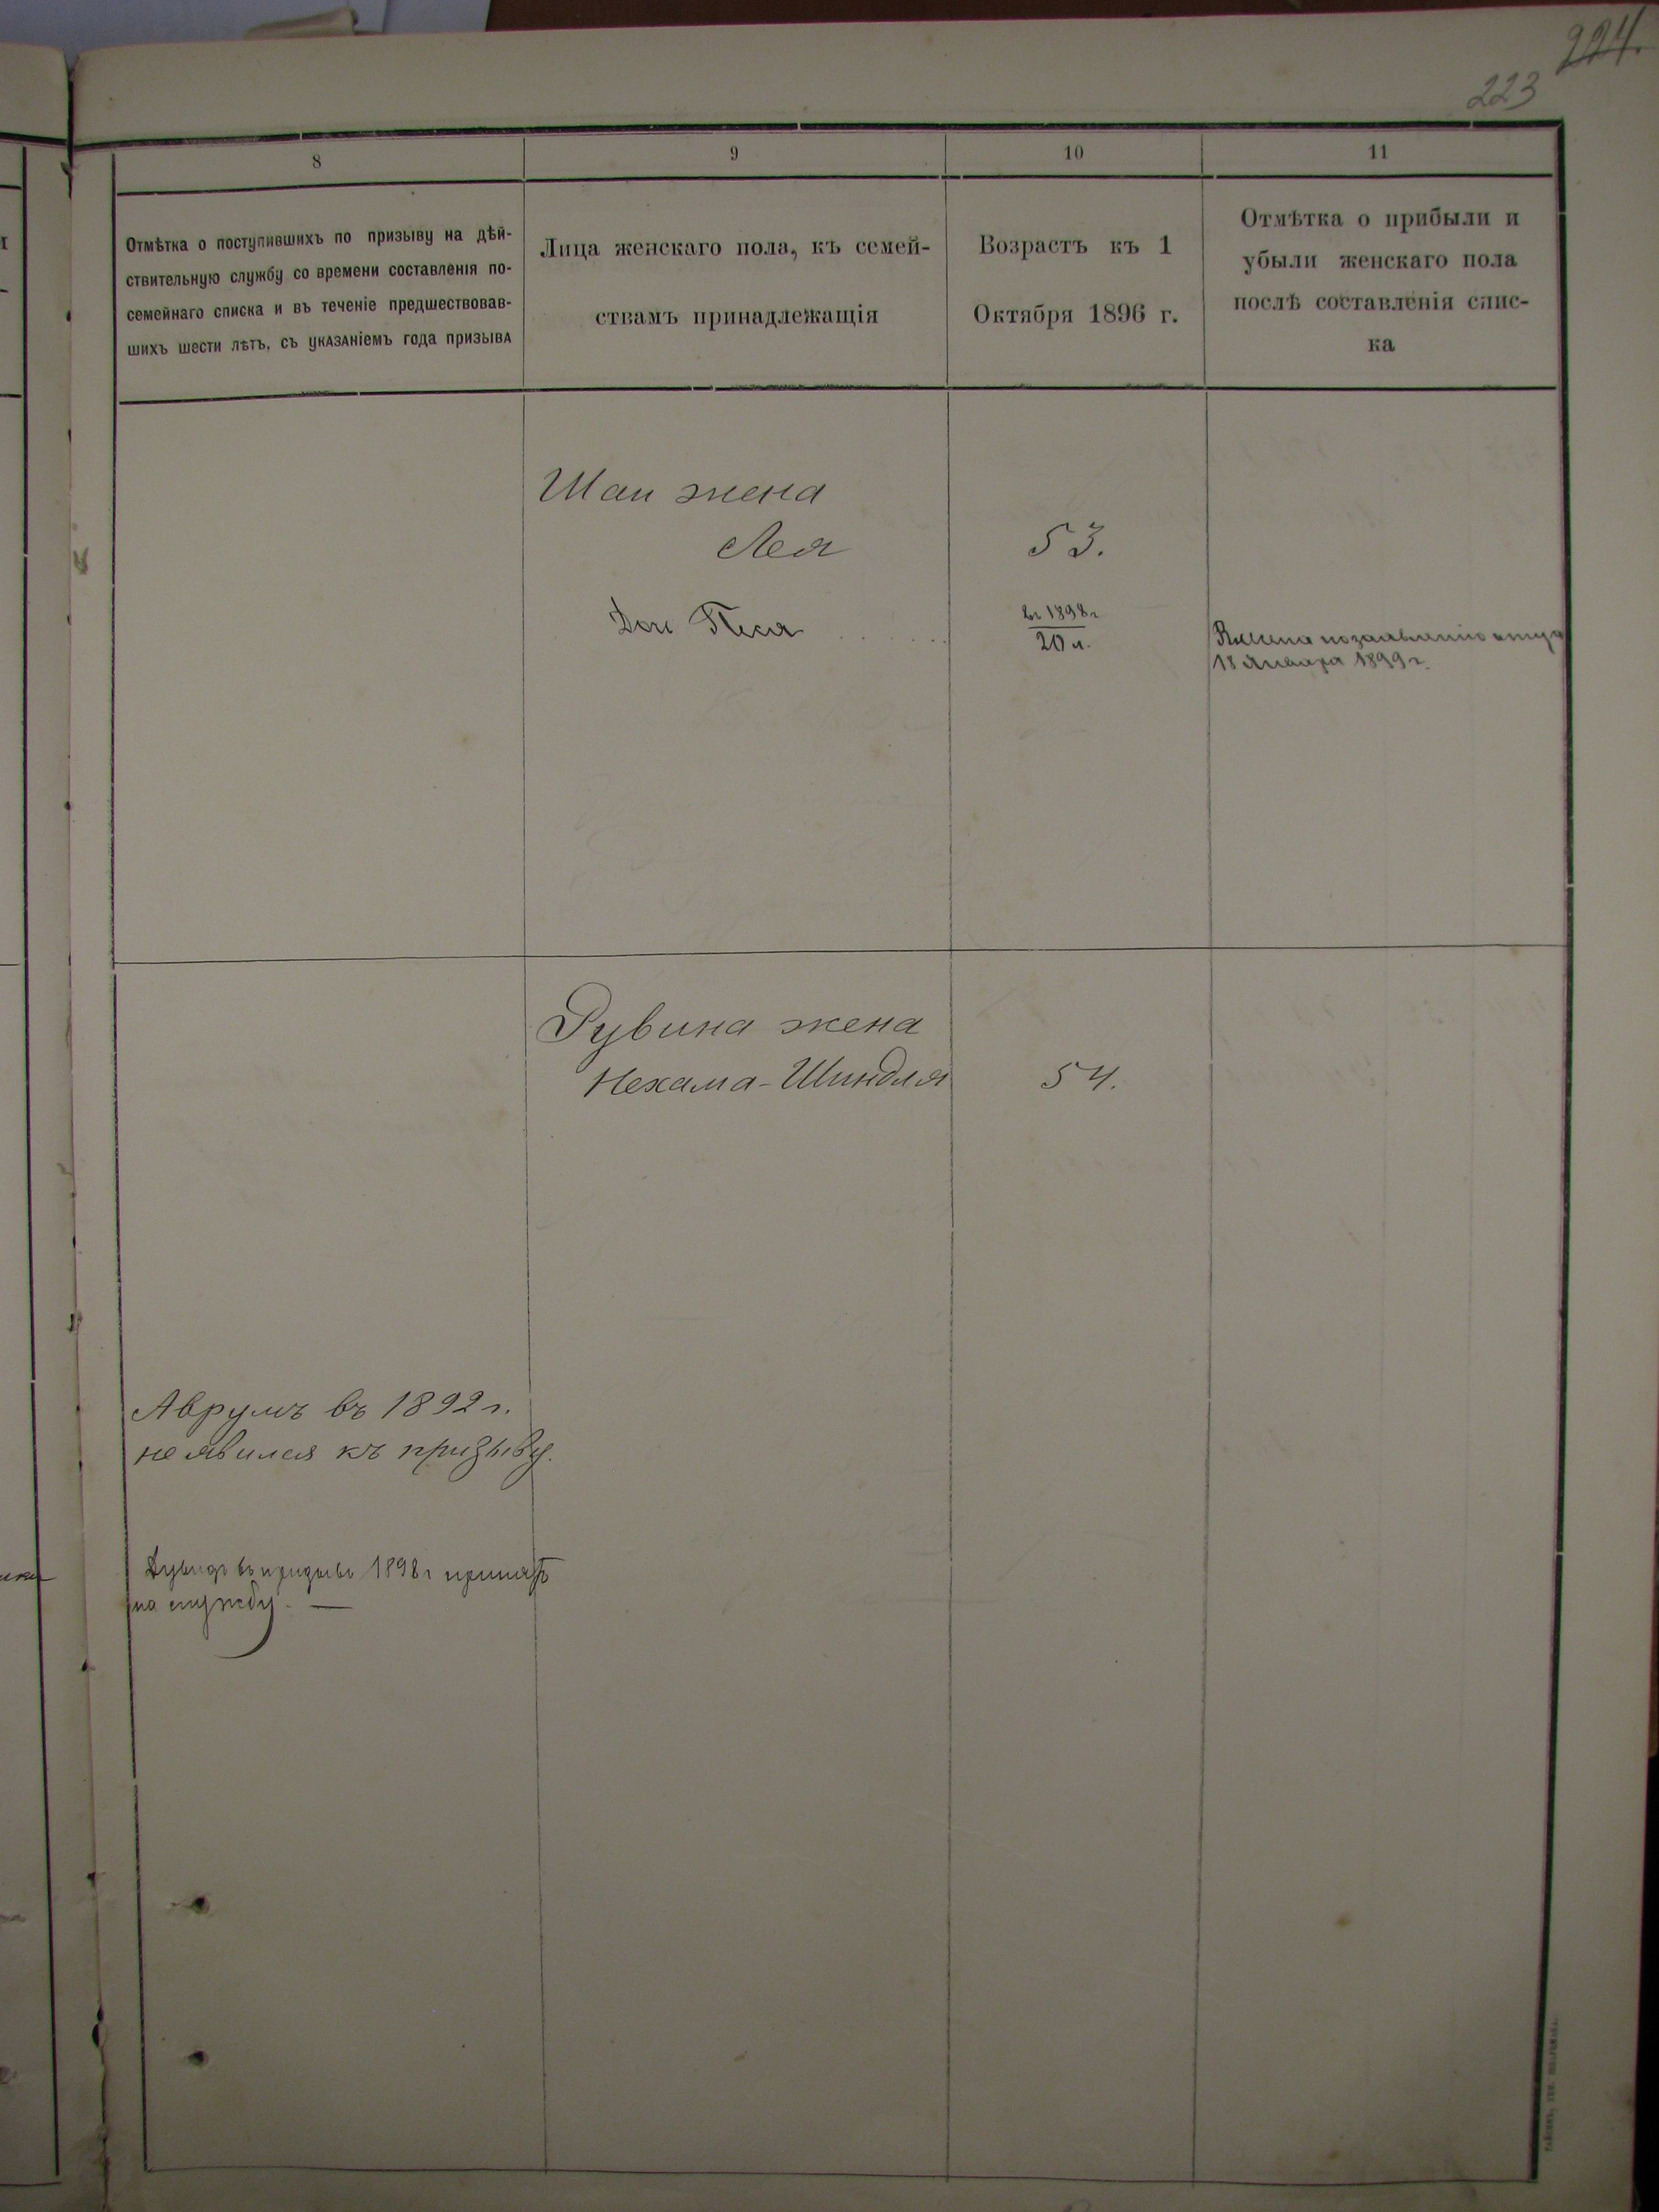 224.
223
8
9
10
11
Отмѣтка о поступившихъ по призыву на дѣй-
ствительную службу со времени составленія по-
семейнаго списка и въ теченіе предшествовав-
шихъ шести лѣтъ, съ указаніемъ года призыва
Лица женскаго пола, къ семей-
ствамъ принадлежащія
Возрастъ къ 1
Октября 1896 г.
Отмѣтка о прибыли и
убыли женскаго пола
послѣ составленія спис-
ка
Шаи жена
Лея
53.
Доч Песя
въ 1898 г
20 л.
по заявленію отца
18 Января 1899 г.
Рувина жена
Нехама-Шиндля
54.
Аврумъ въ 1892 г.
не явился къ призыву.
Дувидъ въ призывъ 1898 г принятъ
на службу. —